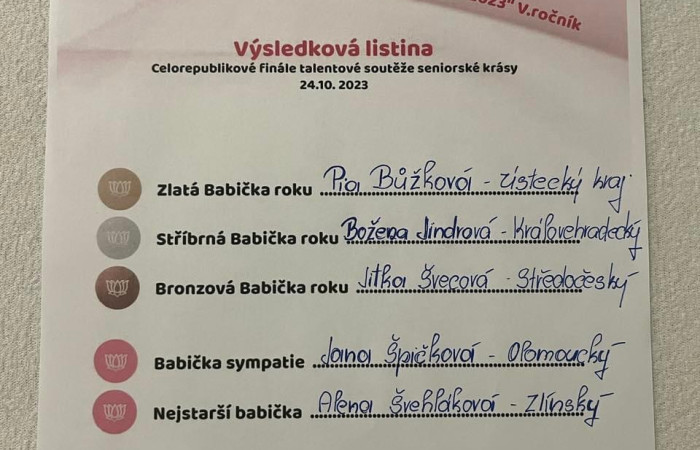 2023" V.ročník
Výsledková listina
Celorepublikové finále talentové soutěže seniorské krásy
24.10. 2023
Zlatá Babička roku Pia Bůžková - Ústecký kraj
Stříbrná Babička roku Božena Jindrová - Královehradecký
Bronzová Babička roku Jitka Švecová - Středočeský
Babička sympatie Jana Špičková - Olomoucký
Nejstarší babička Alena Švehláková - Zlínský